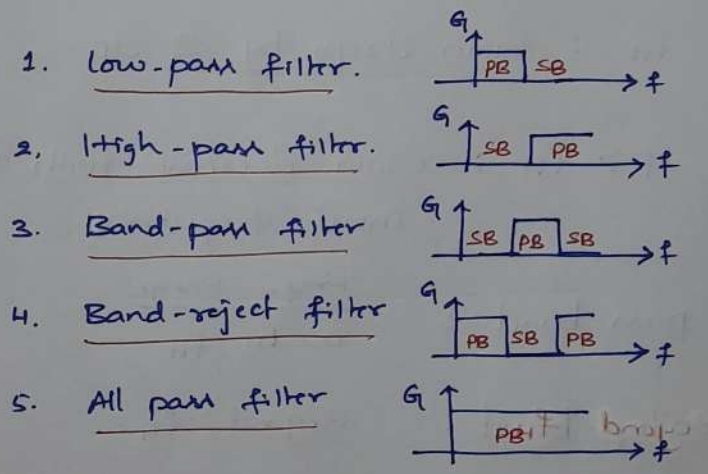 1. Low-pass filter.
G
PB SB
f
2. High-pass filter.
G
SB PB
f
3. Band-pass filter
G
SB PB SB
f
4. Band-reject filter
G
PB SB PB
f
5. All pass filter
G
PB
f